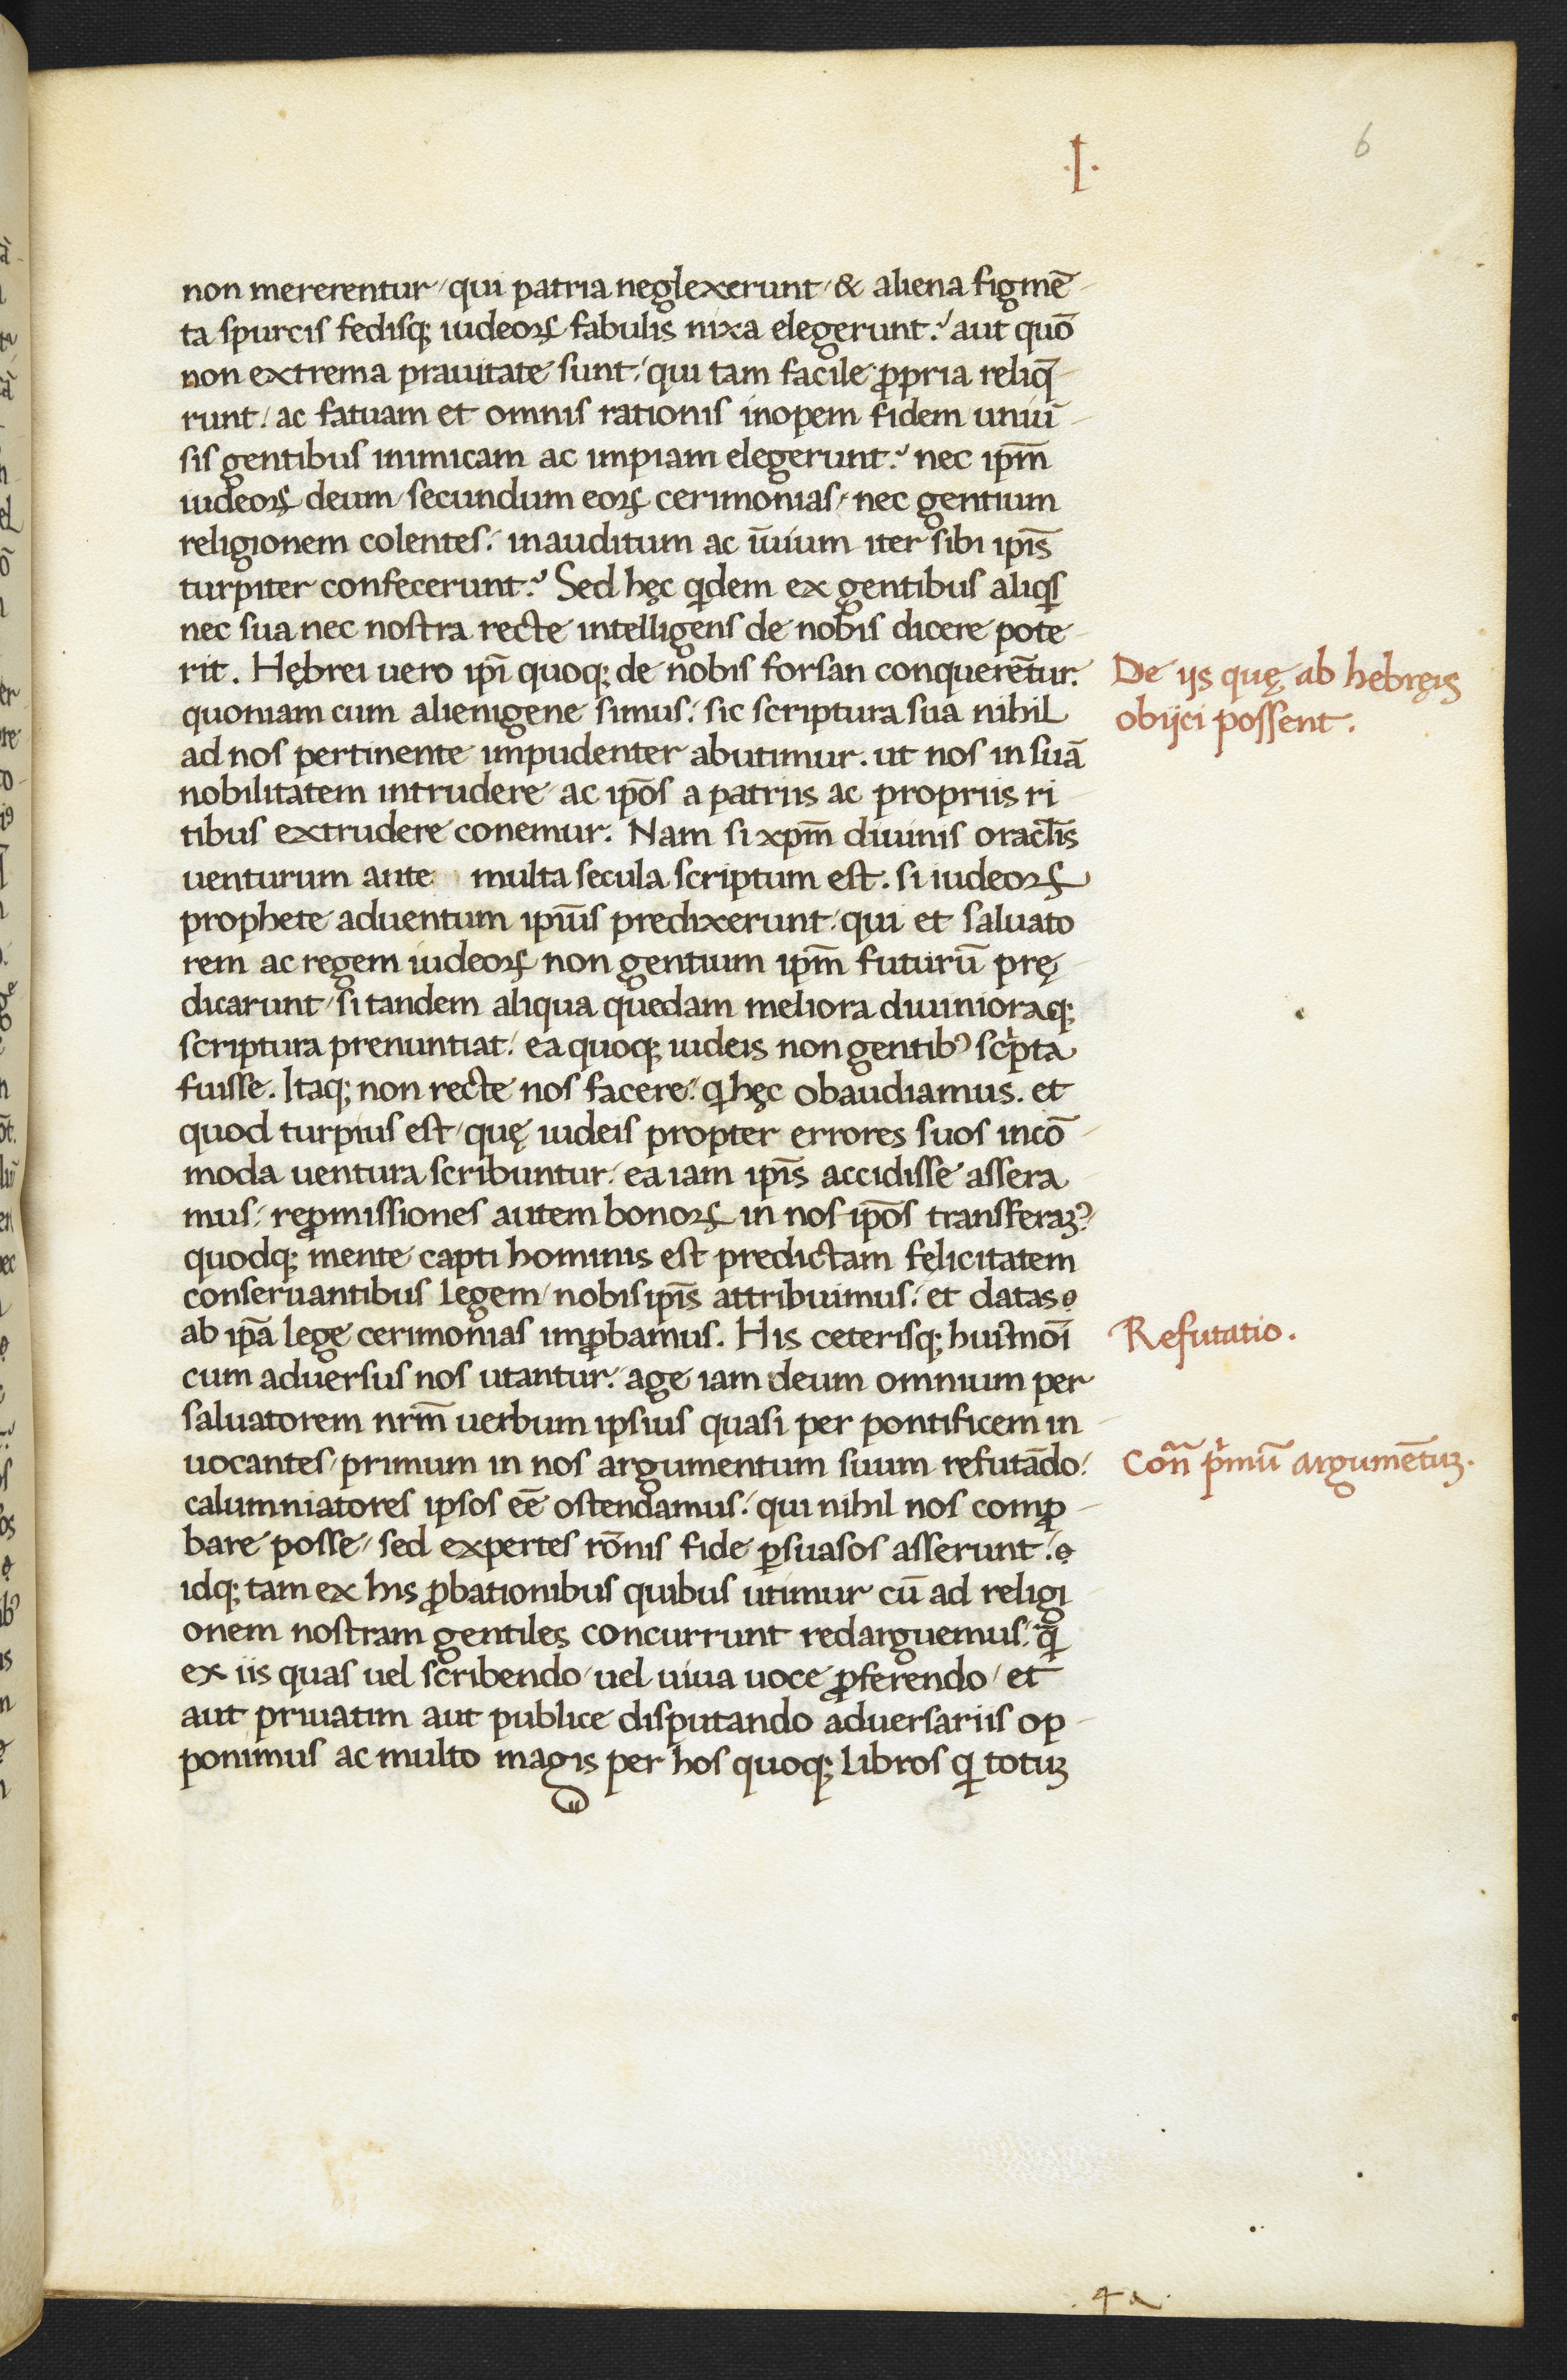 ·I·
6
non mererentur / qui patria neglexerunt / & aliena figmē-
ta spurcis fedisq; iudeoꝝ fabulis nixa elegerunt? aut quō
non extrema prauitate sunt / qui tam facile ꝓpria reliq̄-
runt / ac fatuam et omnis rationis inopem fidem uniū-
sis gentibus inimicam ac impiam elegerunt? nec ip̄m
iudeoꝝ deum / secundum eoꝝ cerimonias / nec gentium
religionem colentes / inauditum ac īuium iter sibi ip̄is
turpiter confecerunt? Sed hęc qͥdem ex gentibus aliqͥs
nec sua nec nostra recte intelligens de nobis dicere pote-
rit. Hębrei uero ip̄i quoq; de nobis forsan conquerēn̄tur.
De ijs quę ab hebręis
obijci possent.
quoniam cum alienigene simus / sic scriptura sua nihil
ad nos pertinente impudenter abutimur. ut nos in suā
nobilitatem intrudere ac ip̄os a patriis ac propriis ri
tibus extrudere conemur. Nam si xp̄m diuinis oracl̄is
uenturum ante multa secula scriptum est. si iudeoꝝ
prophete aduentum ip̄ius predixerunt / qui et saluato
rem ac regem iudeoꝝ non gentium ip̄m futurū prę-
dicarunt / si tandem aliqua quedam meliora diuinioraq;
scriptura prenuntiat / ea quoq; iudeis non gentibꝰ scͥpta
fuisse. Itaq; non recte nos facere / qͥ hęc obaudiamus. et
quod turpius est / quę iudeis propter errores suos incō-
moda uentura scribuntur / ea iam ip̄is accidisse assera-
mus / reꝓmissiones autem bonoꝝ in nos ip̄os transferaꝫꝰ
quodq; mente capti hominis est predictam felicitatem
conseruantibus legem / nobis ip̄is attribuimus / et datas
ab ip̄a lege cerimonias imꝓbamus. His ceterisq; huiꝰmōi
Refutatio.
cum aduersus nos utantur / age iam deum omnium per
saluatorem nr̄m uerbum ipsius quasi per pontificem in-
uocantes / primum in nos argumentum suum refutādo /
Con̄ pͥmū argumētuꝫ.
calumniatores ipsos eē ostendamus / qui nihil nos comꝓ-
bare posse / sed expertes rōnis fide ꝑsuasos asserunt /
idq; tam ex his ꝓbationibus quibus utimur cū ad religi-
onem nostram gentiles concurrunt redarguemus / qͣ̄
ex iis quas uel scribendo / uel uiua uoce ꝓferendo / et
aut priuatim aut publice disputando aduersariis op-
ponimus ac multo magis per hos quoq; libros qͥ totuꝫ